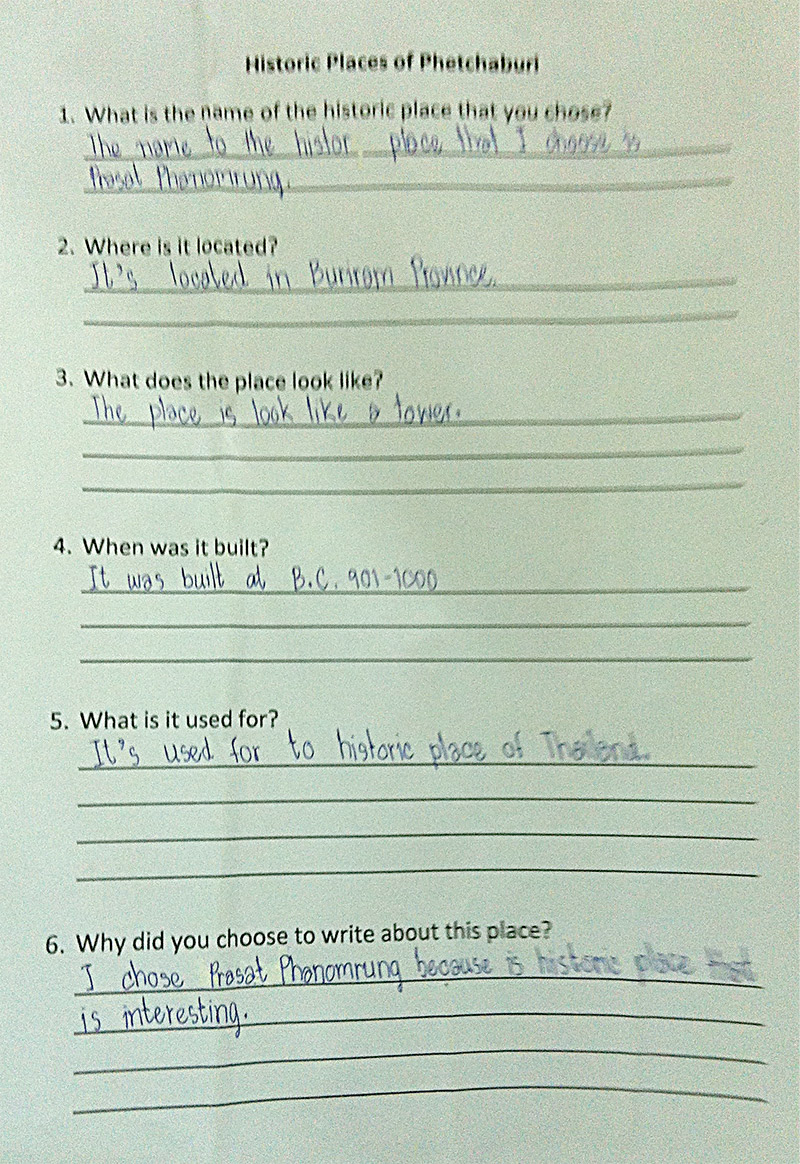 Historic Places of Phetchaburi
1. What is the name of the historic place that you chose?
The name to the histor place that I choose is
Prasat Phanomrung.
2. Where is it located?
It's located in Burirom Province.
3. What does the place look like?
The place is look like a tower.
4. When was it built?
It was built at B.C. 901-1000
5. What is it used for?
It's used for to historic place of Thailand.
6. Why did you choose to write about this place?
I chose Prasat Phanomrung because is historic place
is interesting.